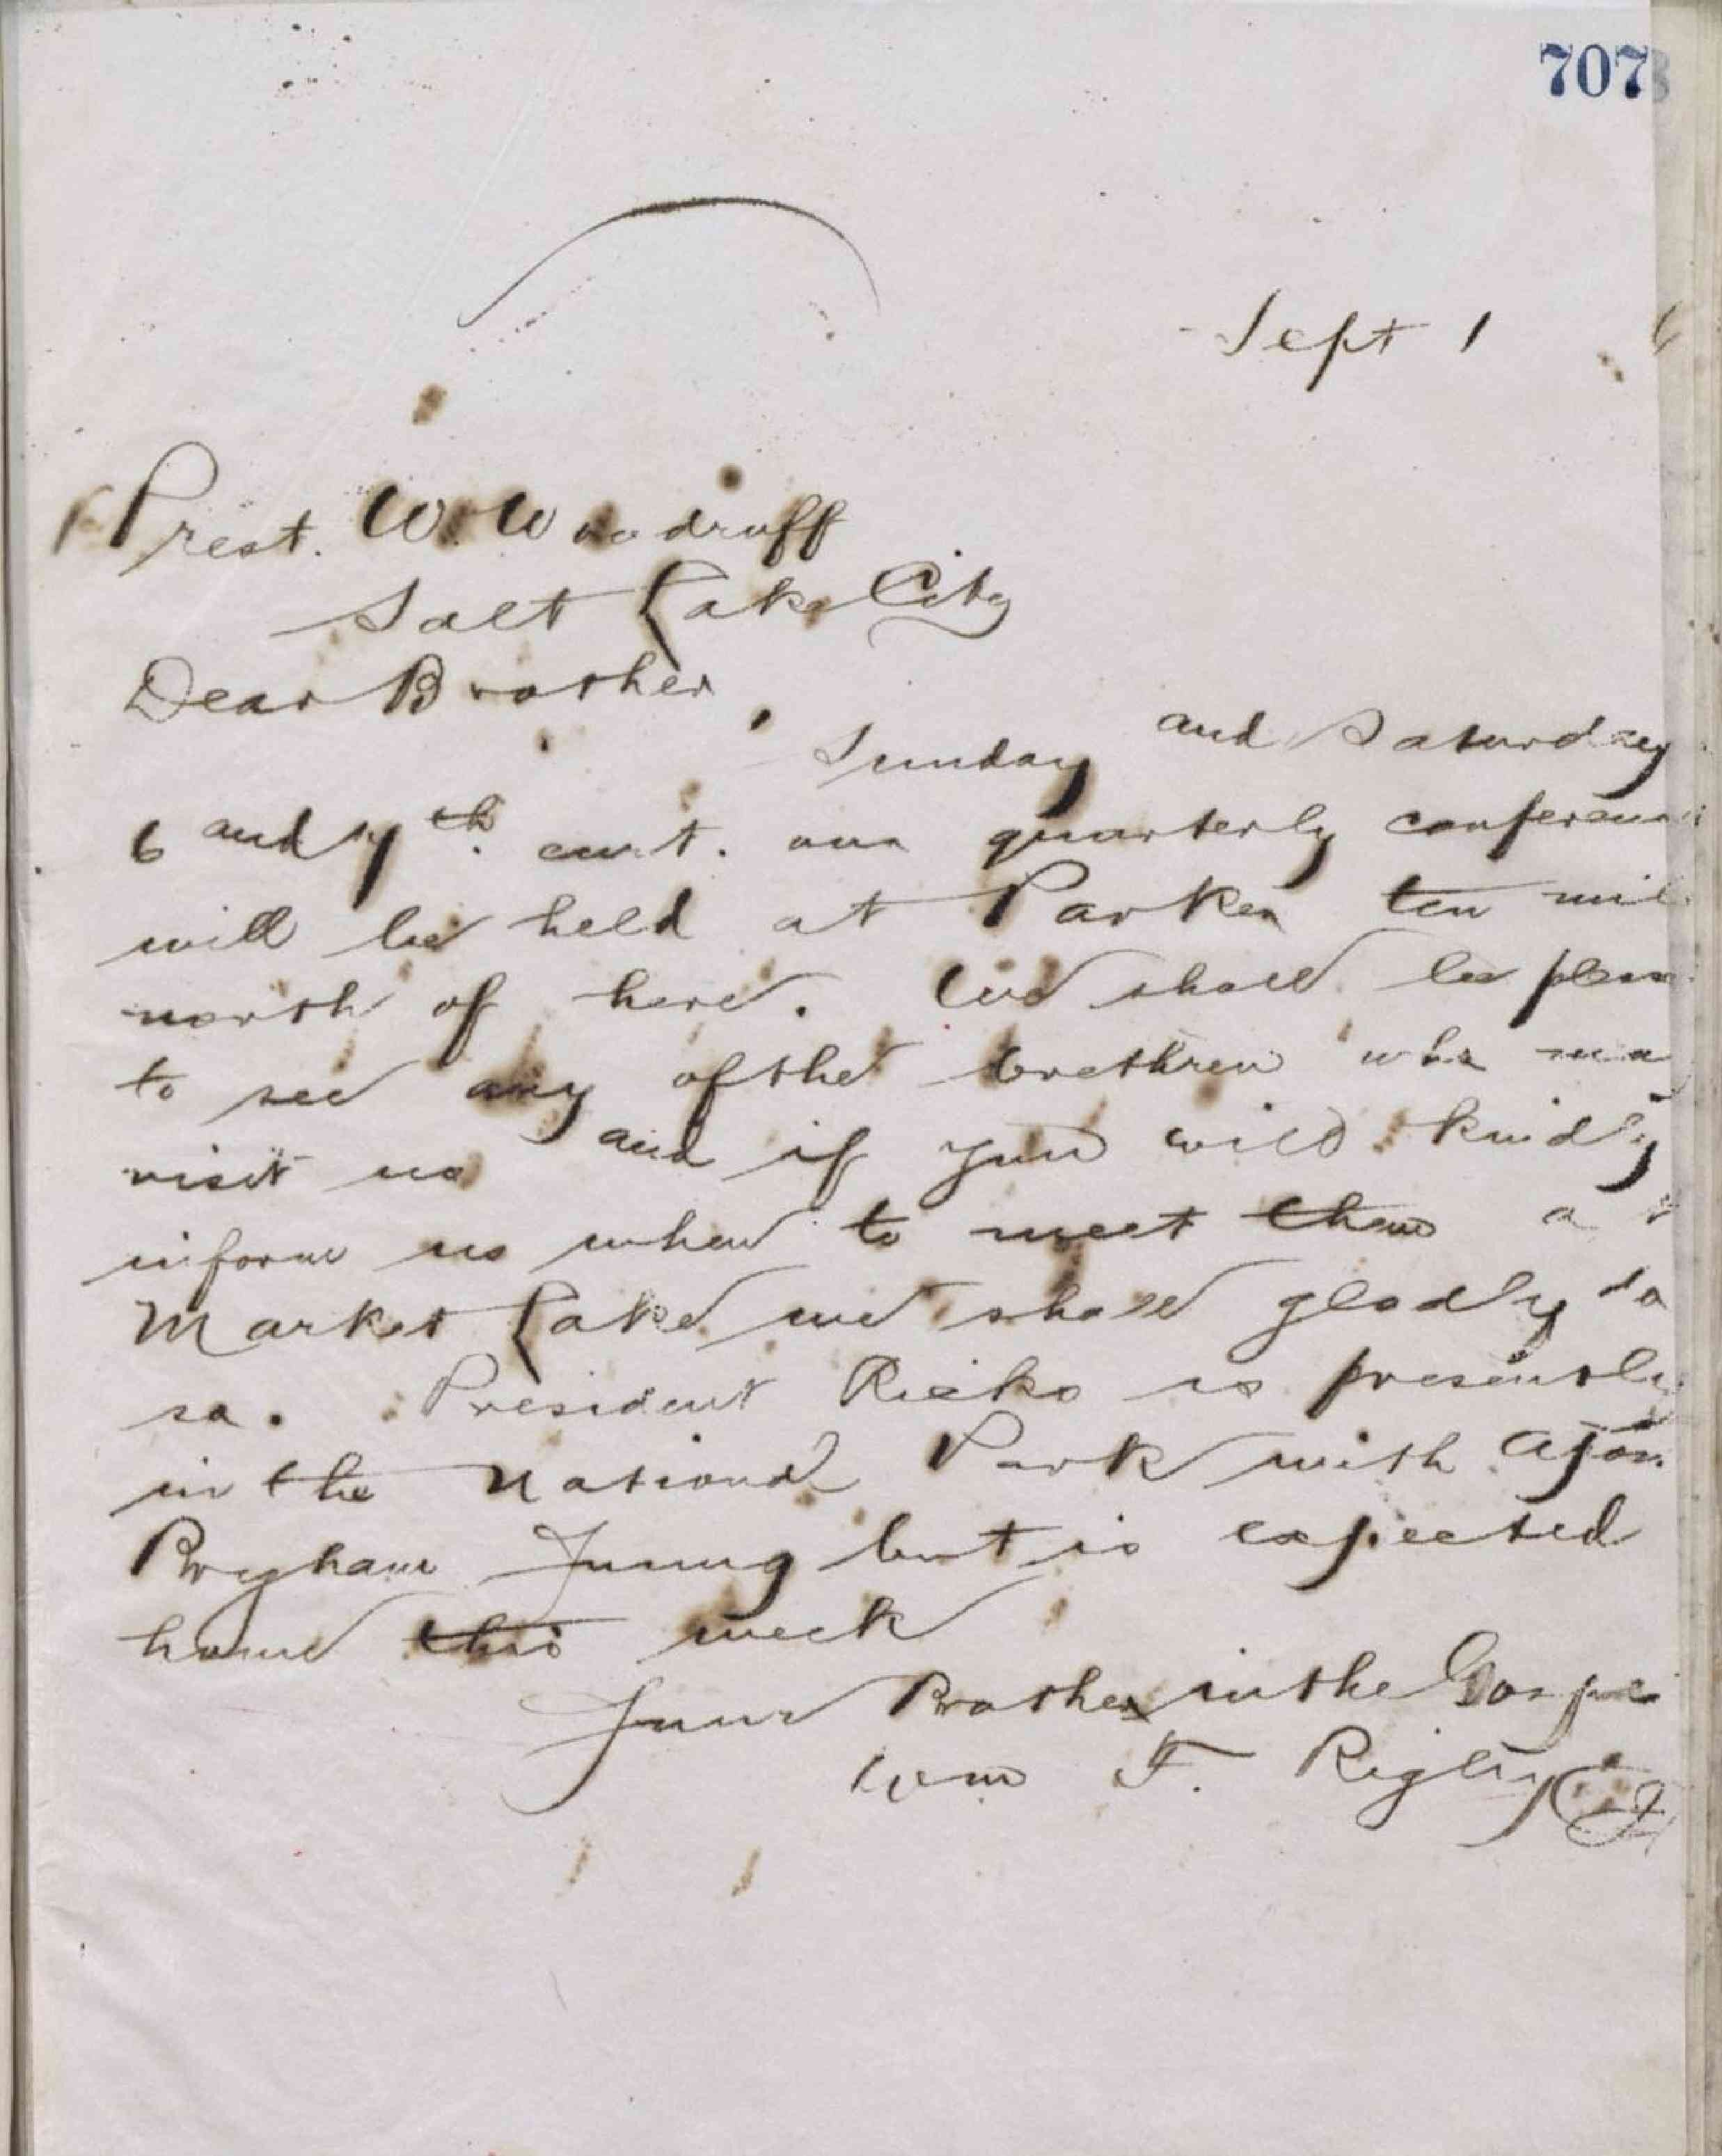 707
Sept 1
Prest. W. Woodruff
Salt Lake City
Dear Brother,
Sunday and Saturday
6 and 7th. curt. our quarterly conferenc
will be held at Parker ten mil
north of here. We shall be pleas
to see any of the brethren who ma
visit us and if you will kindly
inform us when to meet them at
Market Lake we shall gladly do
so. President Ricks is presently
in the National Park with
Brygham Young but is expected
home this week
Your Brother in the Gospel
Wm F. Rigby